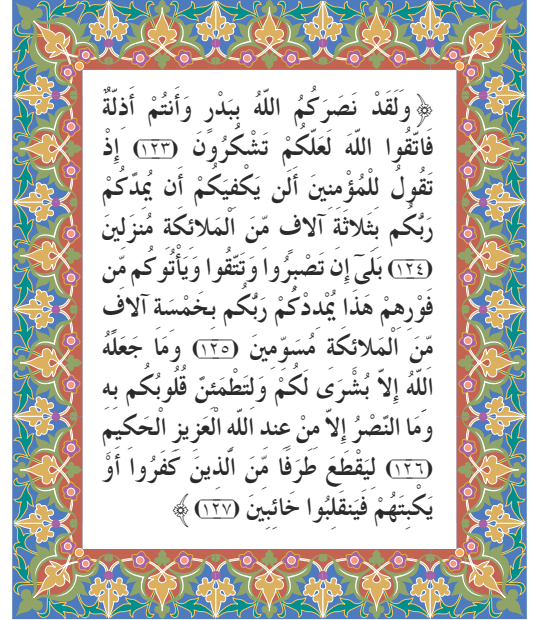 ﴿ وَلَقَدْ نَصَرَكُمُ اللّهُ بِبَدْرٍ وَأَنتُمْ أَذِلَّةٌ
فَاتَّقُوا اللّه لَعَلَّكُمْ تَشْكُرُونَ (١٢٣) إِذْ
تَقُولُ لِلْمُؤْمِنِينَ أَلَن يَكْفِيكُمْ أَن يُمِدّكُمْ
رَبُّكُم بِثَلاثَةِ آلافٍ مِّنَ الْمَلائِكَةِ مُنزَلِينَ
(١٢٤) بَلَىٓ إِن تَصْبِرُوا وَتَتَّقُوا وَيَأْتُوكُم مِّن
فَوْرِهِمْ هَذَا يُمْدِدْكُمْ رَبُّكُم بِخَمْسَةِ آلافٍ
مِّنَ الْمَلائِكَةِ مُسَوِّمِينَ (١٢٥) وَمَا جَعَلَهُ
اللَّهُ إِلاَّ بُشْرَى لَكُمْ وَلِتَطْمَئِنَّ قُلُوبُكُم بِهِ
وَمَا النَّصْرُ إِلاَّ مِنْ عِندِ اللَّهِ الْعَزِيزِ الْحَكِيمِ
(١٢٦) لِيَقْطَعَ طَرَفًا مِّنَ الَّذِينَ كَفَرُوا أَوْ
يَكْبِتَهُمْ فَيَنقَلِبُوا خَائِبِينَ (١٢٧) ﴾